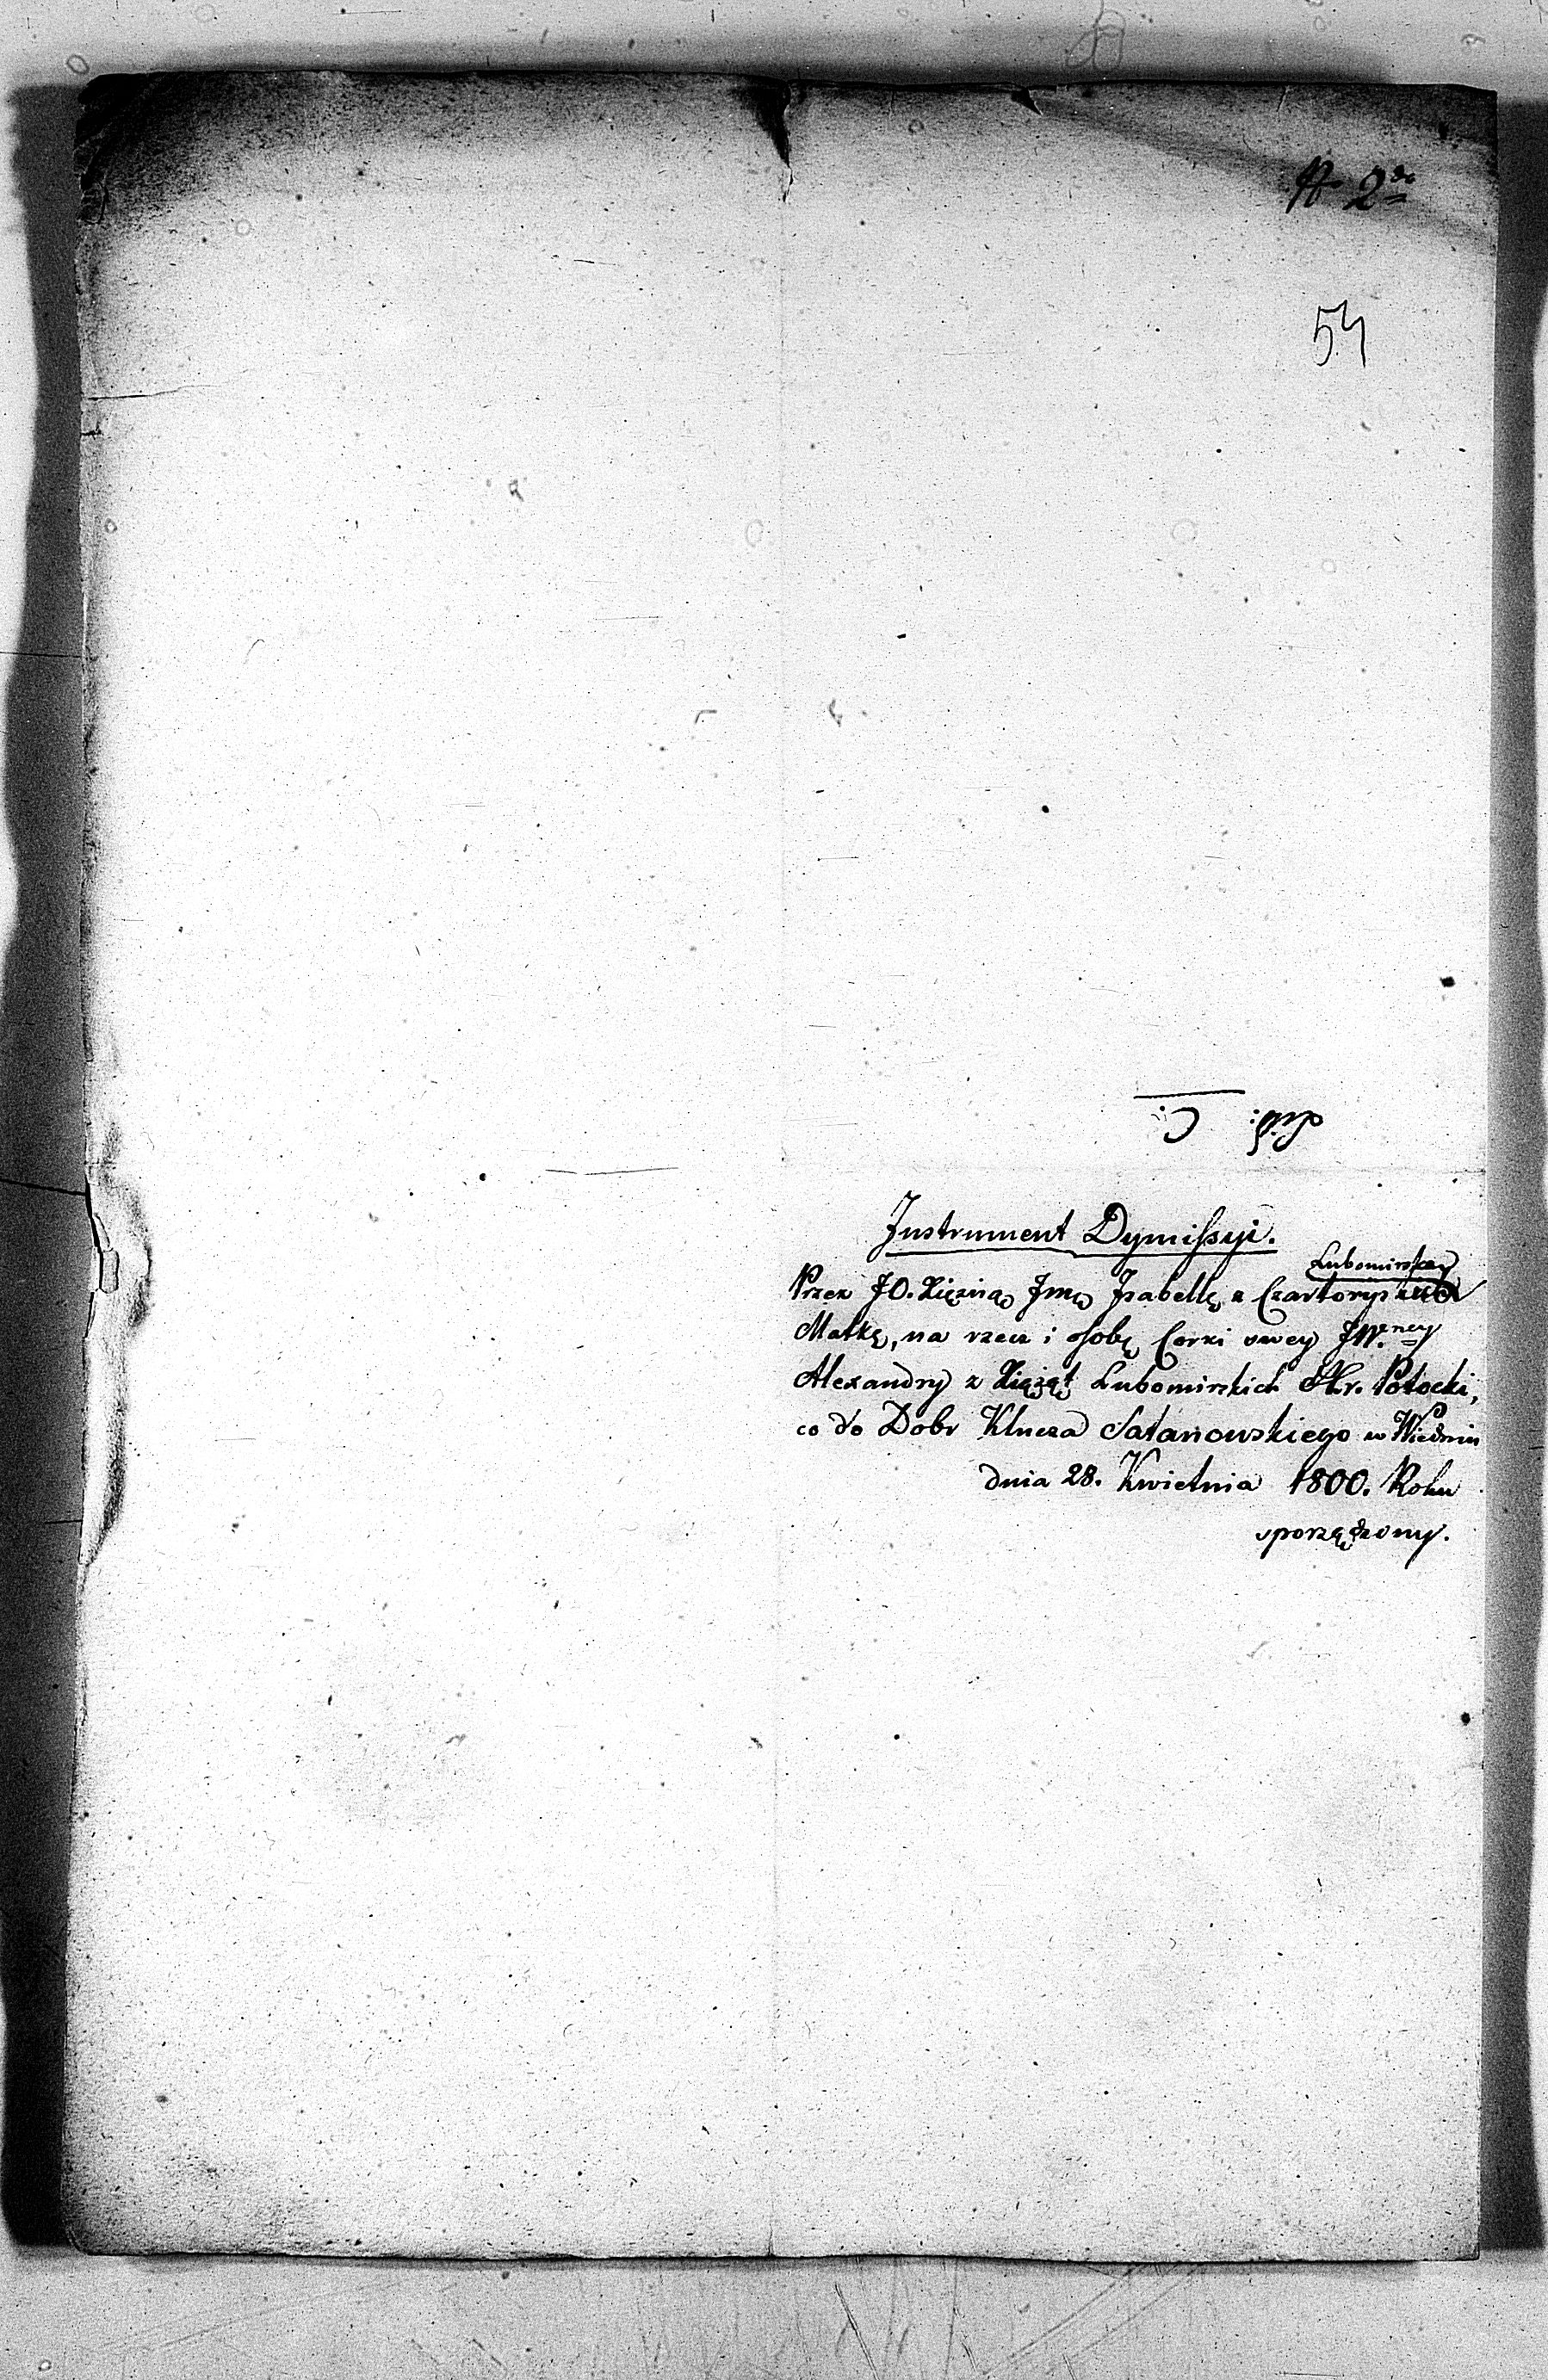 A. 2do
54
Instrument Dymissyi.
Lubomirskey
Przez JO. Xiężnąę Jmę Isabellę z Czartoryskich
Matkę, na rzecz i osobę Corki swey JW.ney
Alexandry z Xiążąt Lubomirskich Hr. Potocki,
co do Dobr Klucza Satanowskiego w Wiedniu
dnia 28. Kwietnia 1800. Roku
sporządzony.